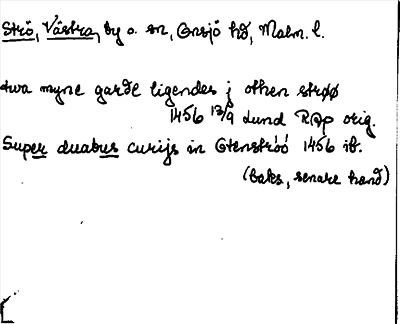 Strö, Västra, by o. sn, Onsjö hd, Malm. l.
twa myne garde ligendes j othen strøø
1456 13/9 Lund RAp orig.
Super duabus curijs in Otenströö 1456 ib.
(baks, senare hand)